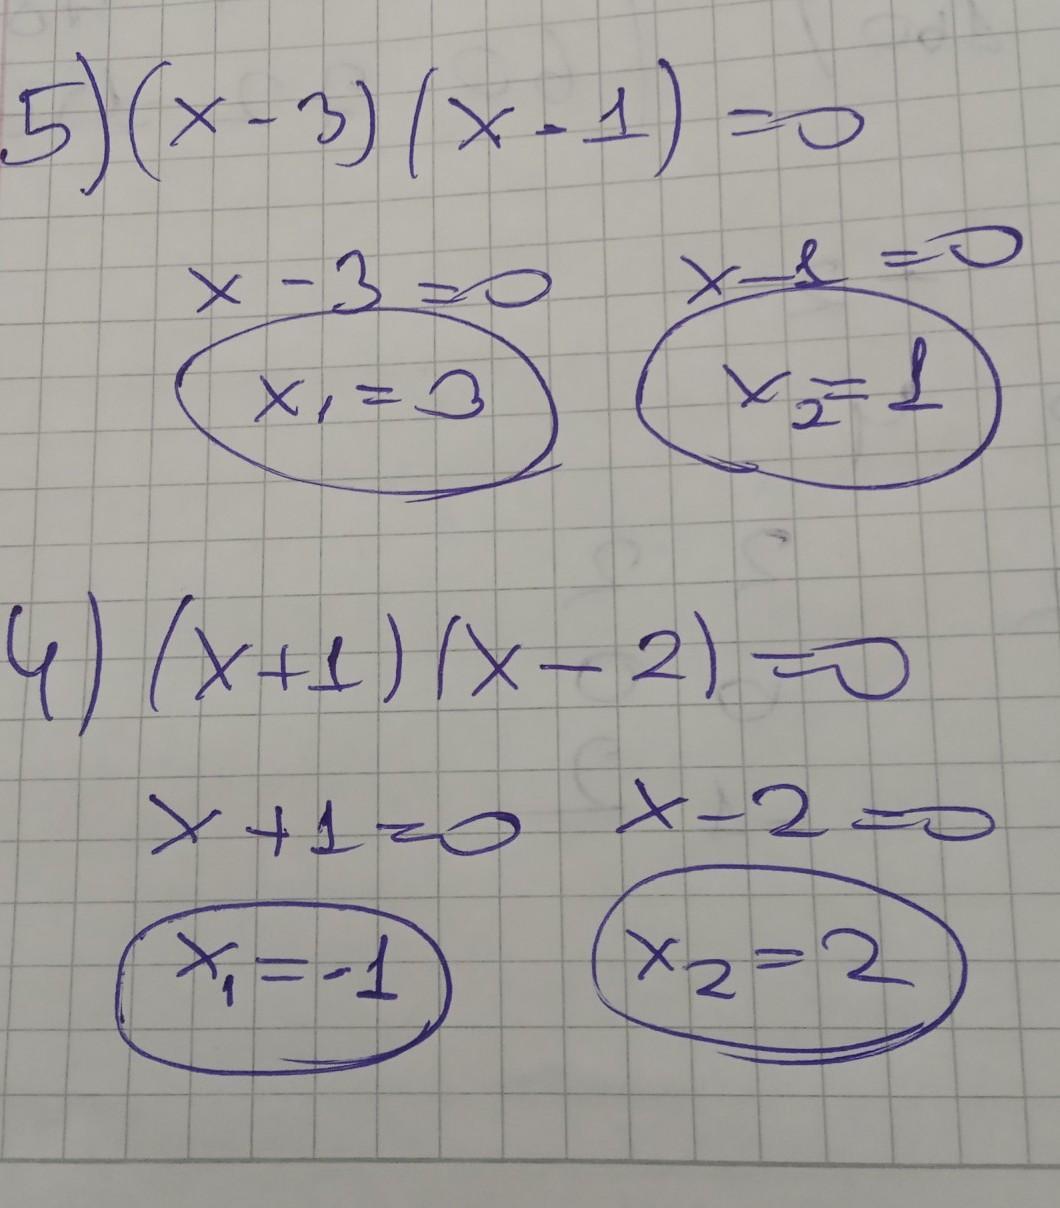 5) (x - 3) (x - 1) = 0
x - 3 = 0 x - 1 = 0
x₁ = 3 x₂ = 1
4) (x + 1) (x - 2) = 0
x + 1 = 0 x - 2 = 0
x₁ = -1 x₂ = 2